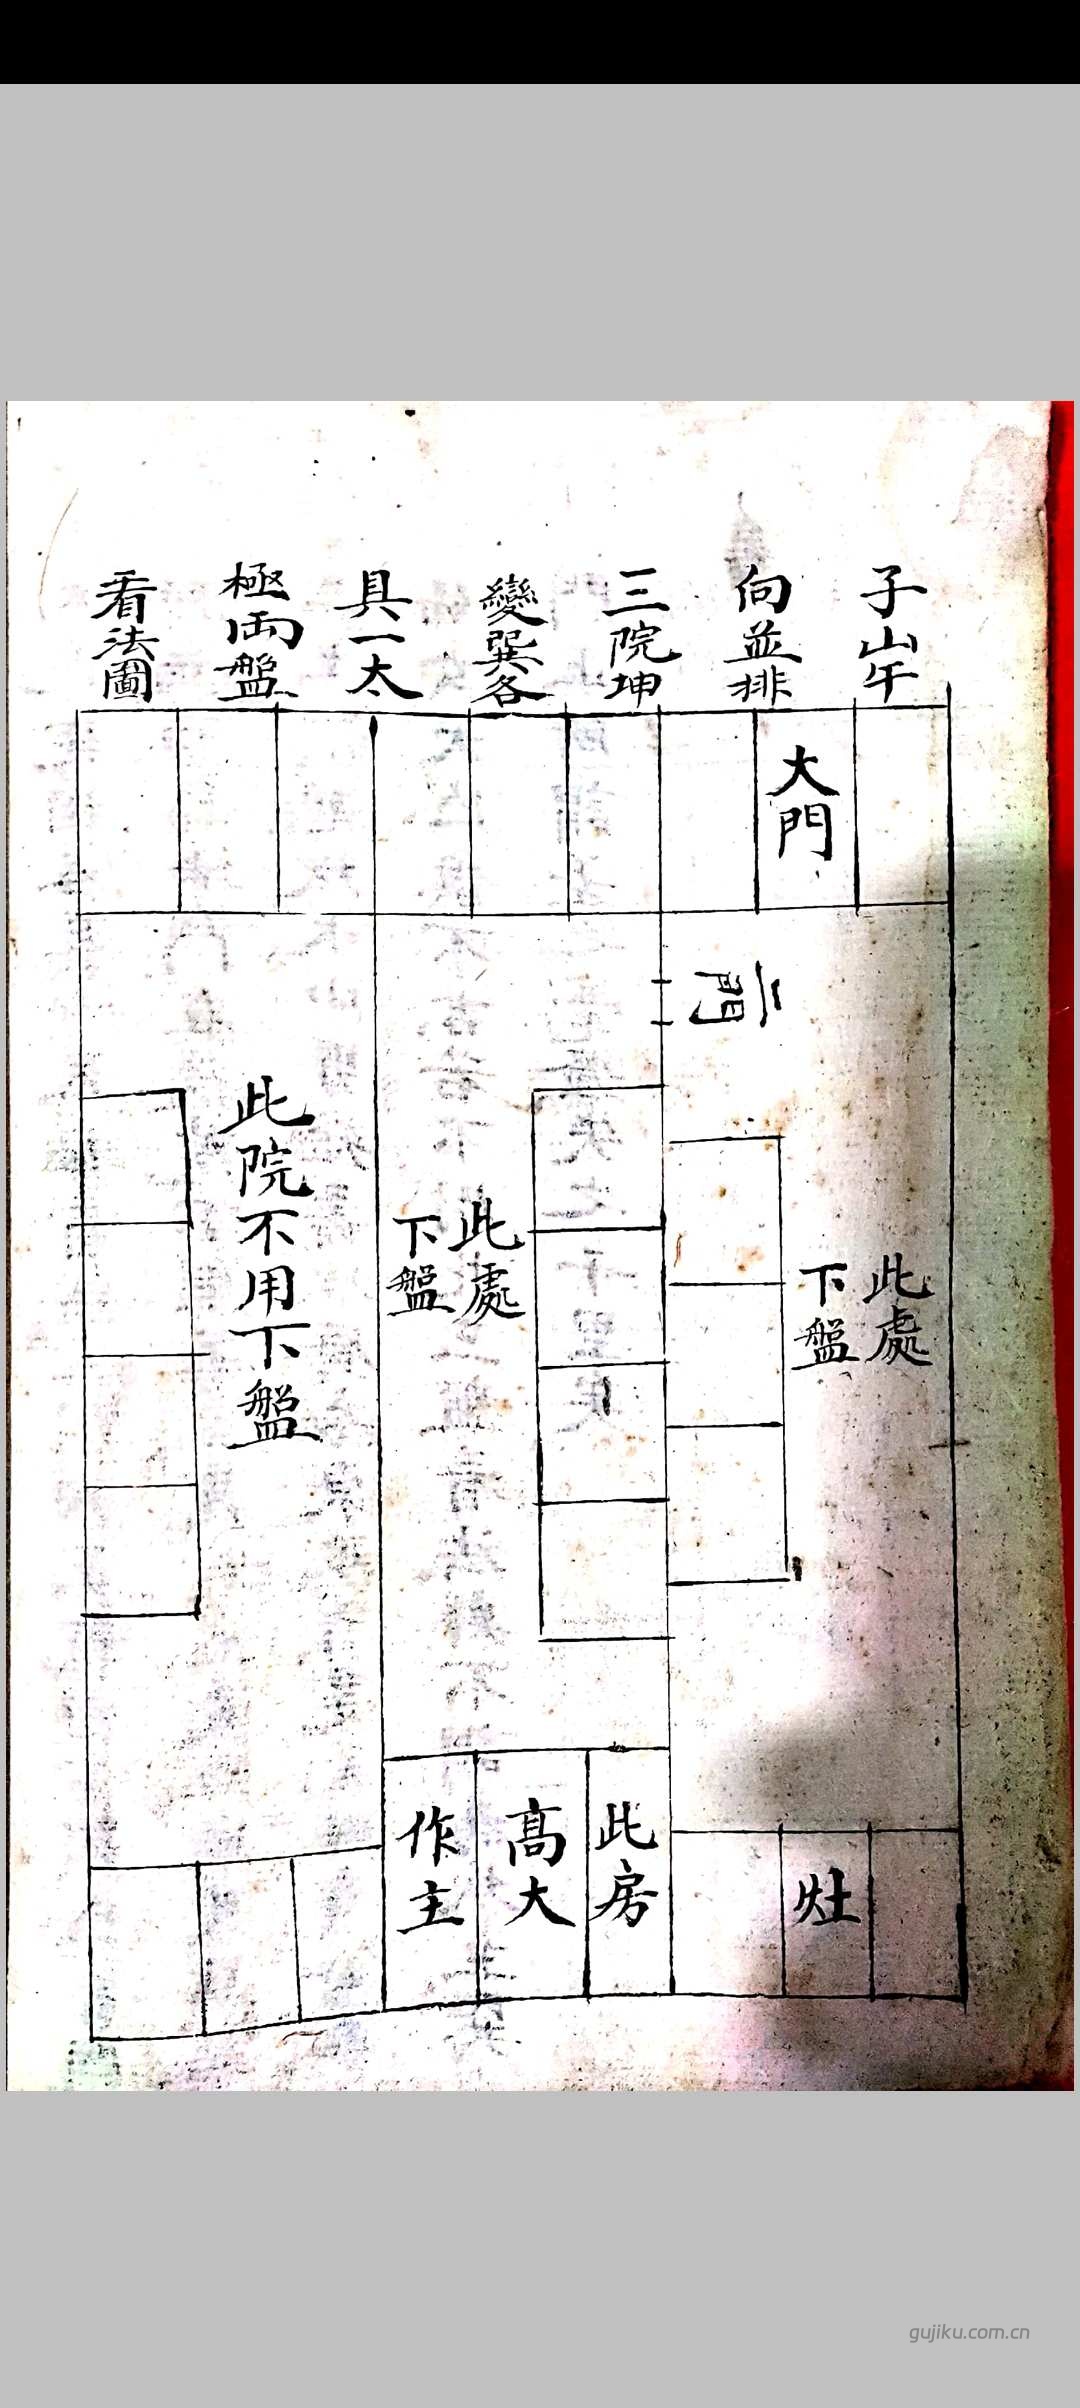 子山午
向並排
三院坤
變巽各
具一太
極両盤
看法圖
大門
二門
此處
下盤
此處
下盤
此院不用下盤
灶
此房
高大
作主
gujiku.com.cn